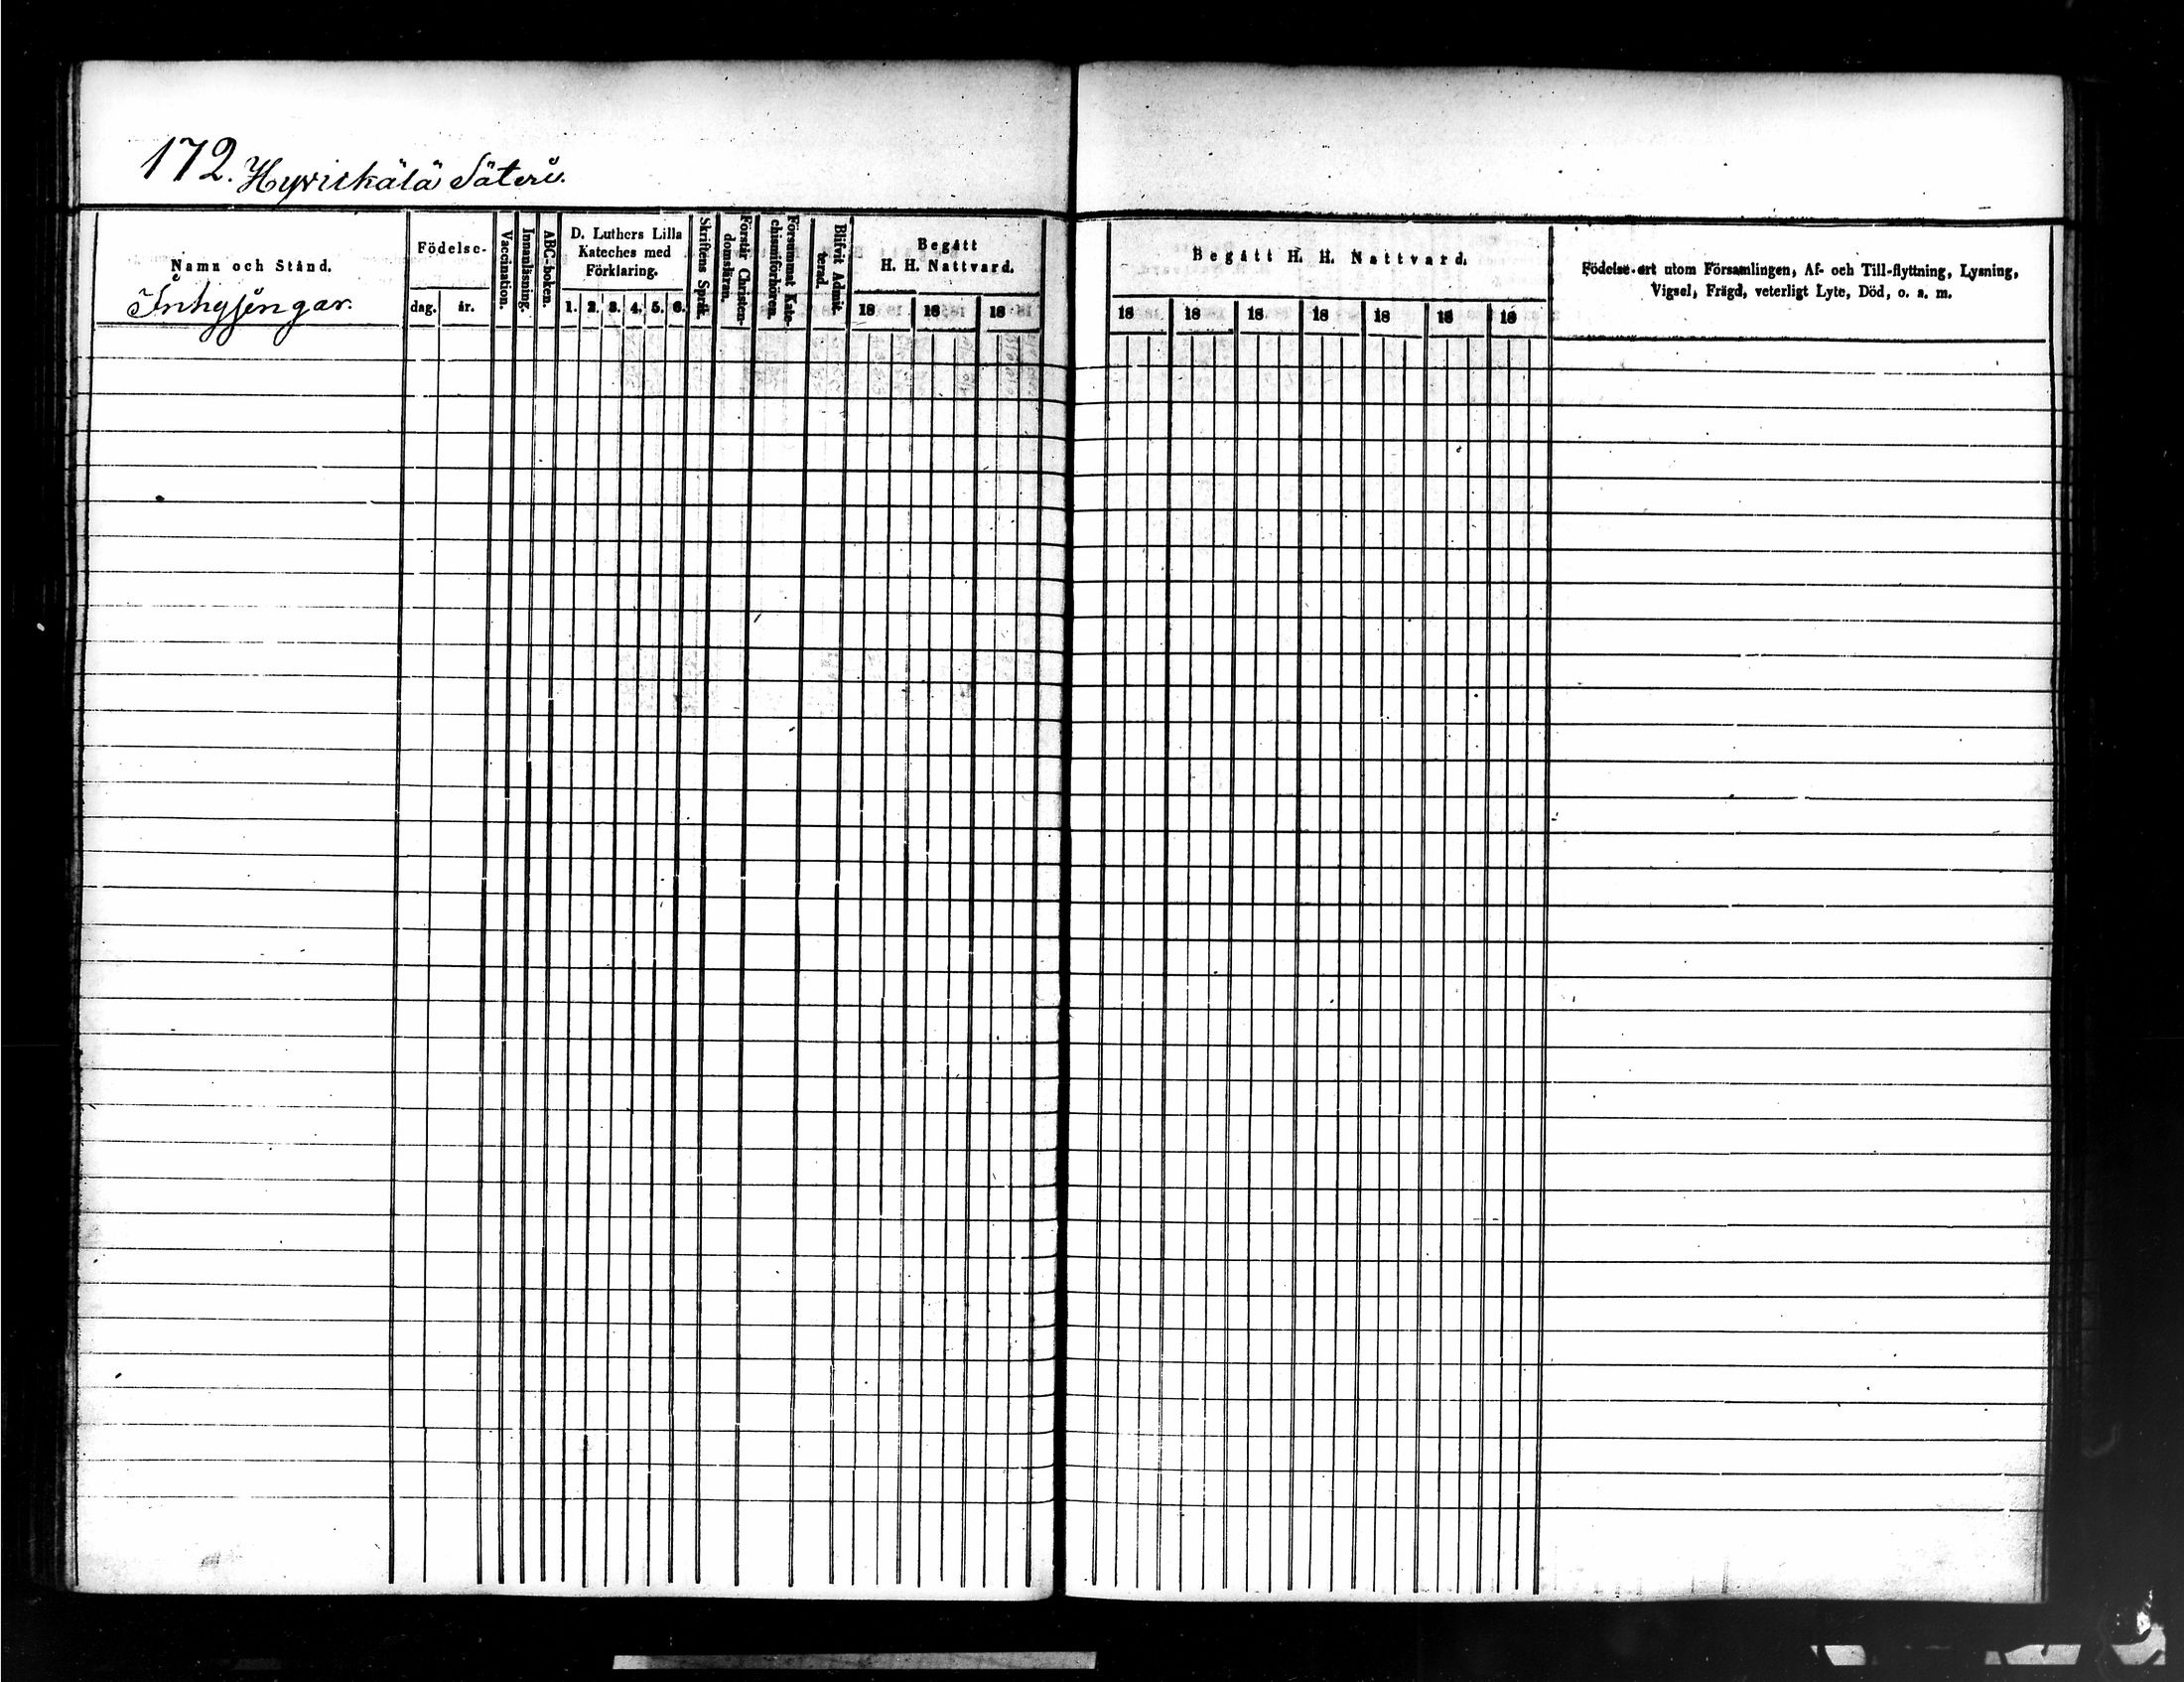 172. Hyvickälä Säteri.
Namn och Stånd.
Inhysingar.
Födelse-
dag. år.
Vaccination.
Innanläsning.
ABC-boken.
D. Luthers Lilla
Kateches med
Förklaring.
1. 2. 3. 4. 5. 6.
Skriftens Språk.
Förstår Christen-
domsläran.
Försummat Kate-
chismiförhören.
Blifvit Admit-
terad.
Begått
H. H. Nattvard.
18 18 18
Begått H. H. Nattvard.
18 18 18 18 18 18 18
Födelse-ort utom Församlingen, Af- och Till-flyttning, Lysning,
Vigsel, Frägd, veterligt Lyte, Död, o. s. m.